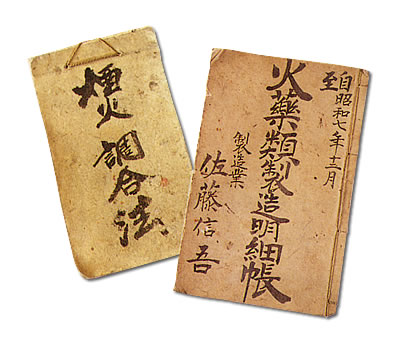 煙火調合法
自昭和七年十二月
至
火藥類製造明細帳
製造業
佐藤信吾